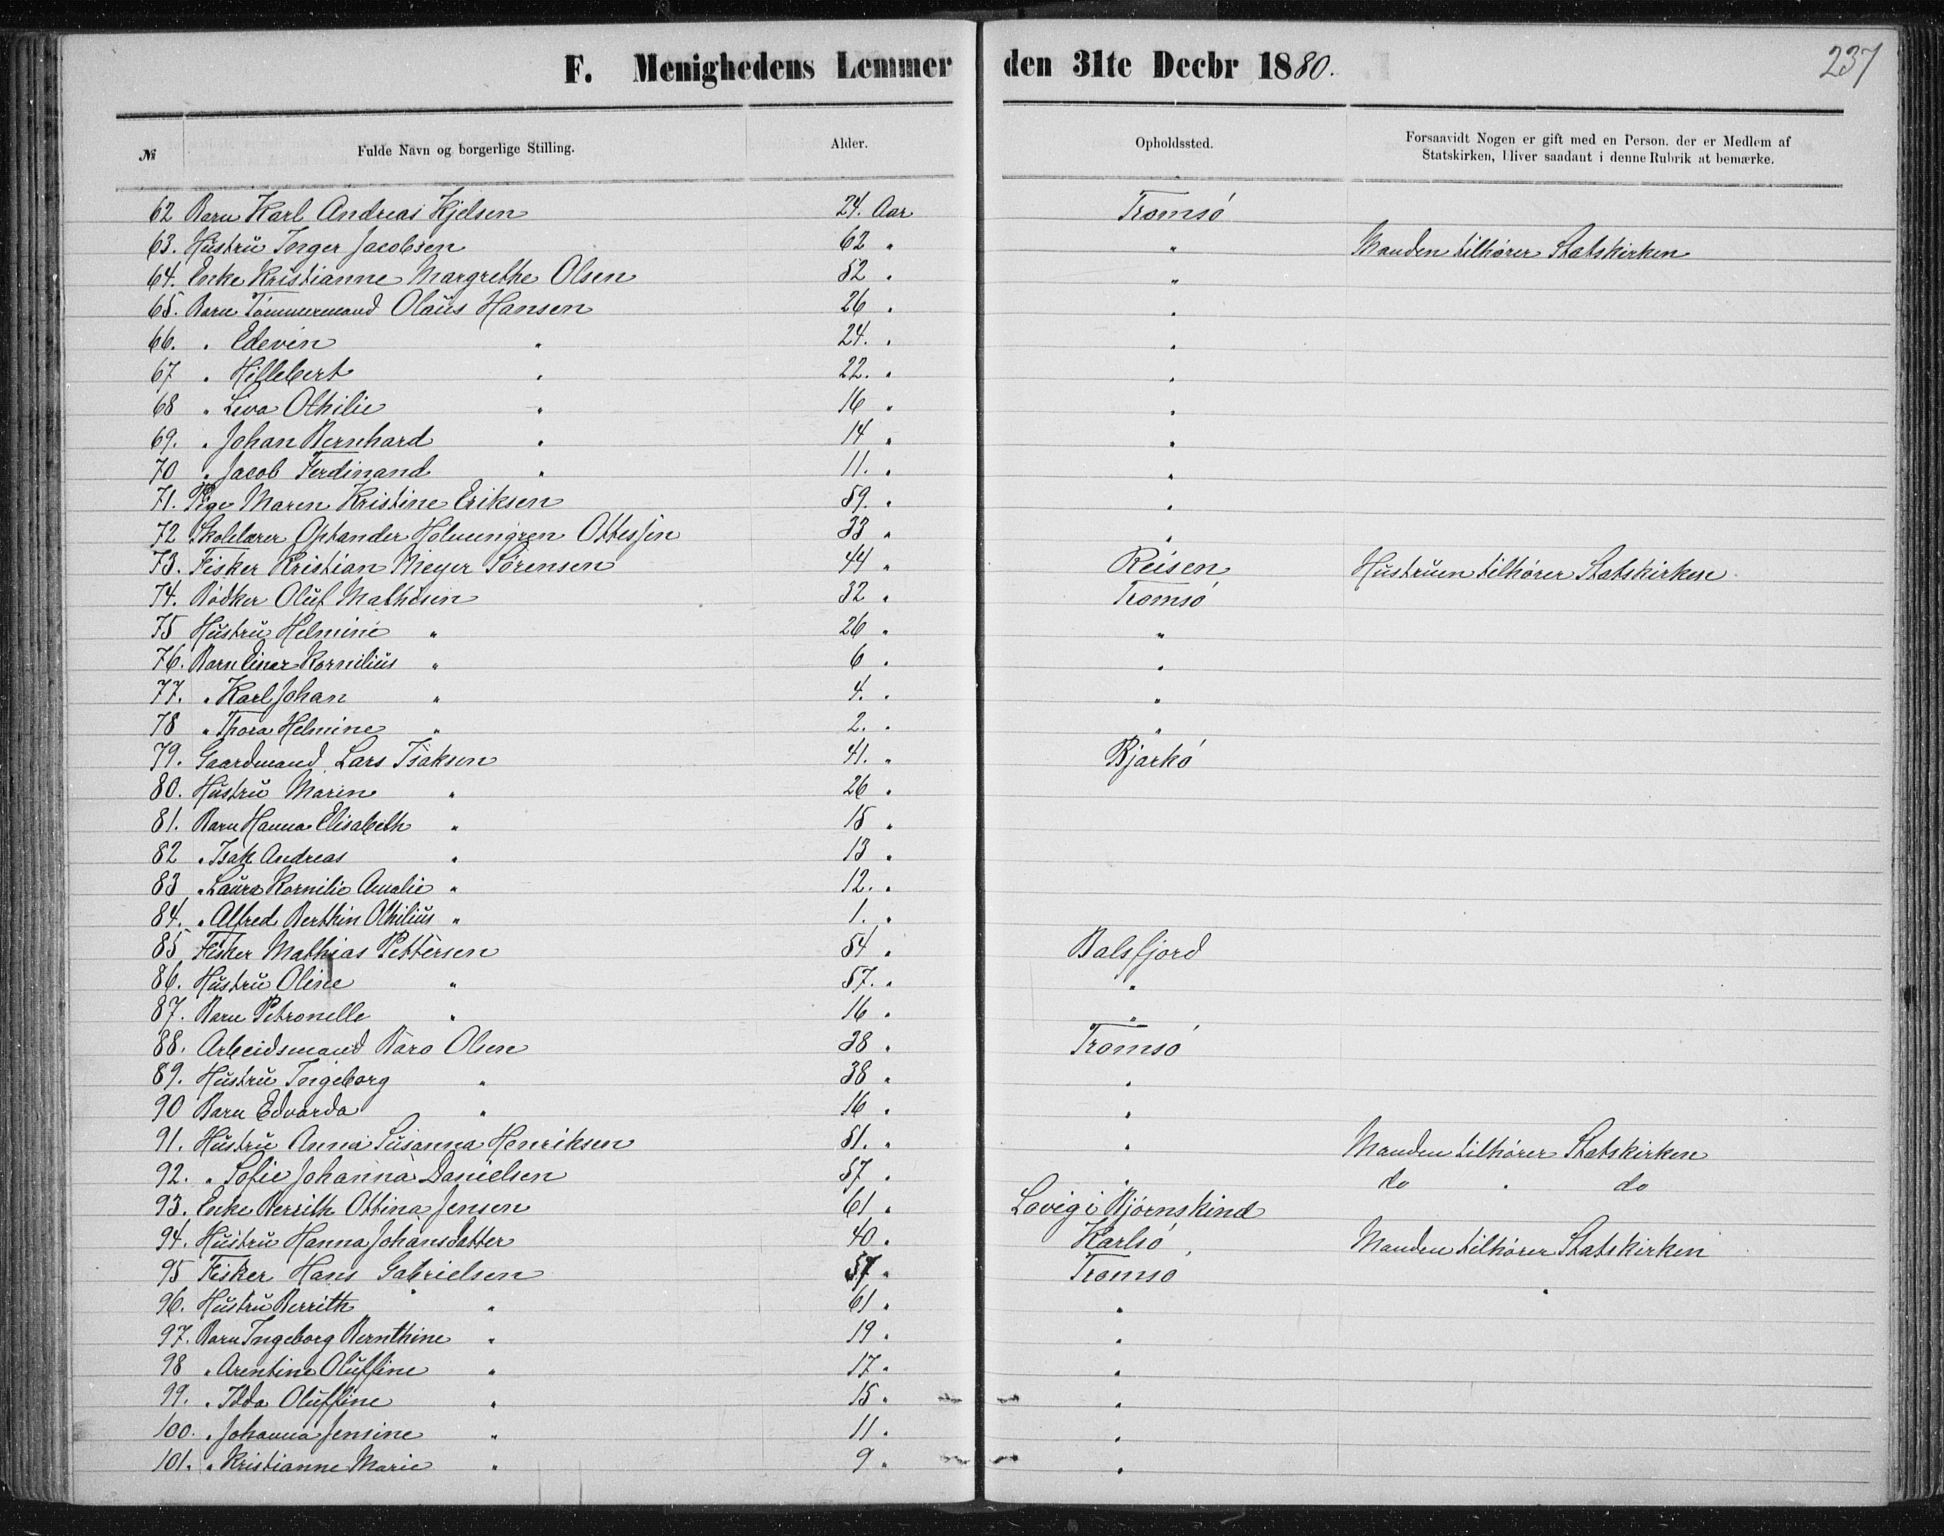 237
F. Menighedens Lemmer den 31te Decbr 1880.
№ Fulde Navn og borgerlige Stilling. Alder. Opholdssted. Forsaavidt Nogen er gift med en Person, der er Medlem af
Statskirken, bliver saadant i denne Rubrik at bemærke.
62 Barn Karl Andreas Kjelsen 24. Aar Tromsø
63. Hustru Inger Jacobsen 62 " " Manden tilhører Statskirken
64. Enke Kristianne Margrethe Olsen 52 " "
65. Barn Tømmermand Olaus Hansen 26 " "
66. " Edevin " 24. " "
67 " Hillebert " 22. " "
68 " Leva Othilie " 16 " "
69. " Johan Bernhard " 14 " "
70 " Jacob Ferdinand " 11. " "
71. Pige Maren Kristine Eriksen 59. " "
72 Skolelærer Optander Holmengren Ottessen 33 " "
73. Fisker Kristian Meyer Sørensen 44 " Reisen Hustruen tilhører Statskirken.
74. Bødker Oluf Mathisen 32 " Tromsø
75 Hustru Helmine " 26 " "
76. Barn Einar Kornilius " 6 " "
77. " Karl Johan " 4. " "
78 " Thora Helmine " 2. " "
79. Gaardmand Lars Isaksen 41. " Bjarkø
80. Hustru Maren " 26 "
81. Barn Hanna Elisabeth " 15 "
82 " Isak Andreas " 13 "
83 " Laura Kornilie Amalie " 12. "
84. " Alfred Berthin Othilius " 1. "
85 Fisker Mathias Pettersen 54 " Balsfjord
86. Hustru Oline " 57. " "
87. Barn Petronelle " 16 " "
88. Arbeidsmand Baro Olsen 38 " Tromsø
89. Hustru Ingeborg " 38 " "
90 Barn Edvarda " 16 " "
91. Hustru Anna Susanna Henriksen 51. " " Manden tilhører Statskirken
92. " Sofie Johanna Danielsen 57 " " do " do
93. Enke Berrith Ottina Jensen 61 " Lovig i Bjørnskind
94. Hustru Hanna Johansdatter 40 " Karlsø Manden tilhører Statskirken
95 Fisker Hans Gabrielsen 57 " Tromsø
96. Hustru Berrith " 61 " "
97. Barn Ingeborg Bernthine " 19 " "
98 " Arentine Oluffine " 17 " "
99. " Idda Oluffine " 15 " "
100. " Johanna Jensine " 11 " "
101. " Kristianne Marie " 9 " "